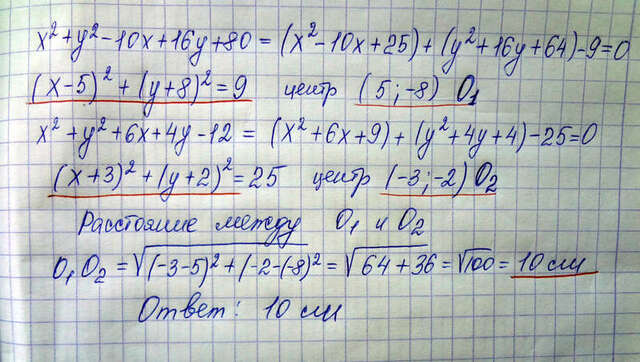 x²+y²-10x+16y+80=(x²-10x+25)+(y²+16y+64)-9=0
(x-5)²+(y+8)²=9 центр (5;-8) O₁
x²+y²+6x+4y-12=(x²+6x+9)+(y²+4y+4)-25=0
(x+3)²+(y+2)²=25 центр (-3;-2) O₂
Расстояние между O₁ и O₂
O₁O₂=√(-3-5)²+(-2-(-8)²=√64+36=√100=10 см
Ответ: 10 см